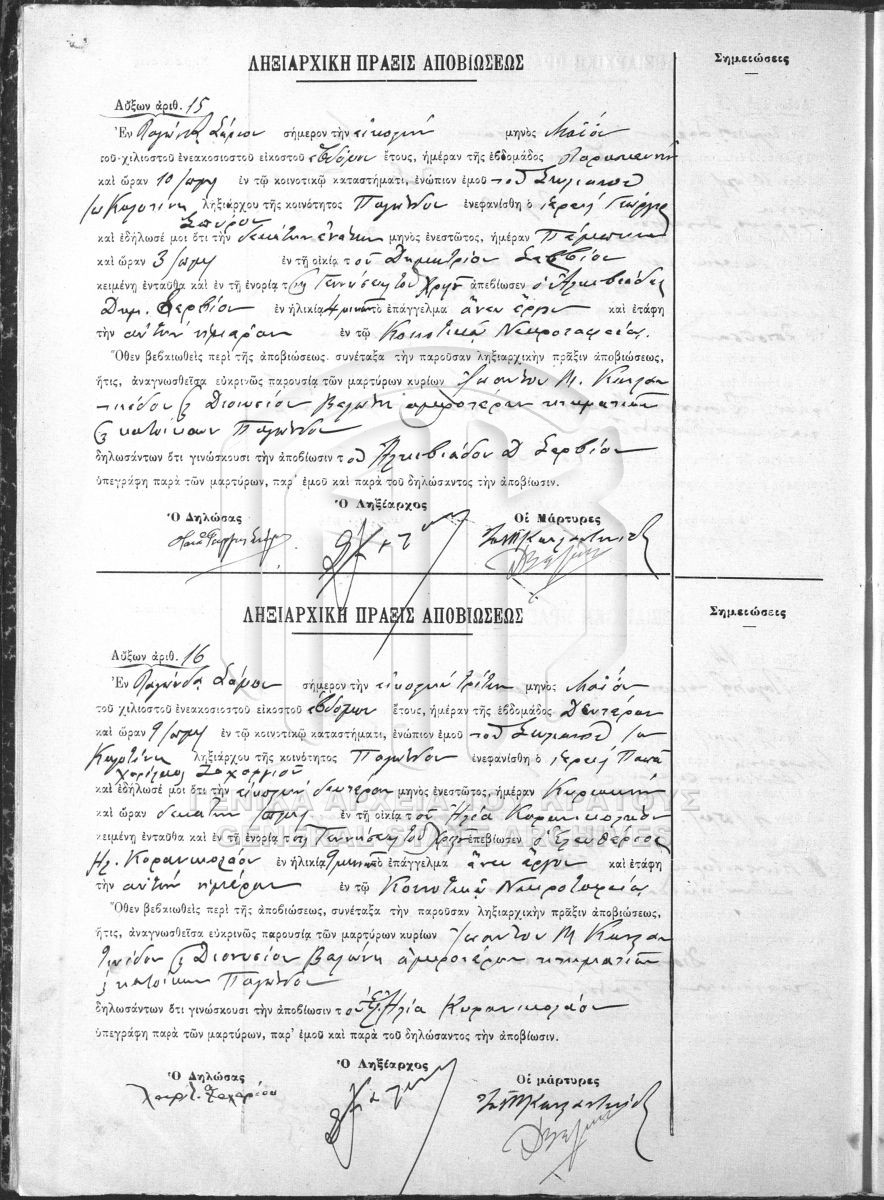 ΛΗΞΙΑΡΧΙΚΗ ΠΡΑΞΙΣ ΑΠΟΒΙΩΣΕΩΣ
Σημειώσεις
Αὔξων ἀριθ. 15
Ἐν Σάμου σήμερον τὴν εἰκοστὴν μηνὸς Μαΐου
τοῦ χιλιοστοῦ ἐνεακοσιοστοῦ εἰκοστοῦ ἑβδόμου ἔτους, ἡμέραν τῆς ἑβδομάδος Παρασκευὴν
καὶ ὥραν 10 π.μ. ἐν τῷ κοινοτικῷ καταστήματι, ἐνώπιον ἐμοῦ τοῦ
ληξιάρχου τῆς κοινότητος Παγώνδου ἐνεφανίσθη ὁ ἱερεὺς Γεώργιος
Σπύρου
καὶ ἐδήλωσέ μοι ὅτι τὴν δεκάτην ἐνάτην μηνὸς ἐνεστῶτος, ἡμέραν Πέμπτην
καὶ ὥραν 3 ἐν τῇ οἰκίᾳ τοῦ Δημητρίου Σερβίου
κειμένῃ ἐνταῦθα καὶ ἐν τῇ ἐνορίᾳ τῆς Γεννήσεως τοῦ Χριστοῦ ἀπεβίωσεν ὁ Ἀλκιβιάδης
Δημ. Σερβίου ἐν ἡλικίᾳ 4 τὸ ἐπάγγελμα ἄνευ ἔργου καὶ ἐτάφη
τὴν αὐτὴν ἡμέραν ἐν τῷ Κοινοτικῷ Νεκροταφείῳ.
Ὅθεν βεβαιωθεὶς περὶ τῆς ἀποβιώσεως, συνέταξα τὴν παροῦσαν ληξιαρχικὴν πρᾶξιν ἀποβιώσεως,
ἥτις, ἀναγνωσθεῖσα εὐκρινῶς παρουσίᾳ τῶν μαρτύρων κυρίων Μ.
Διονυσίου Βαλώνη ἀμφοτέρων κτηματιῶν
κατοίκων Παγώνδου
δηλωσάντων ὅτι γινώσκουσι τὴν ἀποβίωσιν τοῦ Ἀλκιβιάδου Δ Σερβίου
ὑπεγράφη παρὰ τῶν μαρτύρων, παρ' ἐμοῦ καὶ παρὰ τοῦ δηλώσαντος τὴν ἀποβίωσιν.
Ὁ Δηλώσας Ὁ Ληξίαρχος Οἱ Μάρτυρες
ΛΗΞΙΑΡΧΙΚΗ ΠΡΑΞΙΣ ΑΠΟΒΙΩΣΕΩΣ
Σημειώσεις
Αὔξων ἀριθ. 16
Ἐν Σάμου σήμερον τὴν εἰκοστὴν τρίτην μηνὸς Μαΐου
τοῦ χιλιοστοῦ ἐνεακοσιοστοῦ εἰκοστοῦ ἑβδόμου ἔτους, ἡμέραν τῆς ἑβδομάδος Δευτέραν
καὶ ὥραν 9 π.μ. ἐν τῷ κοινοτικῷ καταστήματι, ἐνώπιον ἐμοῦ τοῦ
ληξιάρχου τῆς κοινότητος Παγώνδου ἐνεφανίσθη ὁ ἱερεὺς Παπᾶ
καὶ ἐδήλωσέ μοι ὅτι τὴν εἰκοστὴν δευτέραν μηνὸς ἐνεστῶτος, ἡμέραν Κυριακὴν
καὶ ὥραν δεκάτην ἐν τῇ οἰκίᾳ τοῦ Ἠλία Καρανικολάου
κειμένῃ ἐνταῦθα καὶ ἐν τῇ ἐνορίᾳ τῆς Γεννήσεως τοῦ Χριστοῦ ἀπεβίωσεν ὁ Ἐλευθέριος
Ἠλ. Καρανικολάου ἐν ἡλικίᾳ 9 τὸ ἐπάγγελμα ἄνευ ἔργου καὶ ἐτάφη
τὴν αὐτὴν ἡμέραν ἐν τῷ Κοινοτικῷ Νεκροταφείῳ
Ὅθεν βεβαιωθεὶς περὶ τῆς ἀποβιώσεως, συνέταξα τὴν παροῦσαν ληξιαρχικὴν πρᾶξιν ἀποβιώσεως,
ἥτις, ἀναγνωσθεῖσα εὐκρινῶς παρουσίᾳ τῶν μαρτύρων κυρίων Μ
Διονυσίου Βαλώνη ἀμφοτέρων κτηματιῶν
κατοίκων Παγώνδου
δηλωσάντων ὅτι γινώσκουσι τὴν ἀποβίωσιν τοῦ Ἠλία Καρανικολάου
ὑπεγράφη παρὰ τῶν μαρτύρων, παρ' ἐμοῦ καὶ παρὰ τοῦ δηλώσαντος τὴν ἀποβίωσιν.
Ὁ Δηλώσας Ὁ Ληξίαρχος Οἱ μάρτυρες
ΓΕΝΙΚΑ ΑΡΧΕΙΑ ΤΟΥ ΚΡΑΤΟΥΣ
GENERAL STATE ARCHIVES